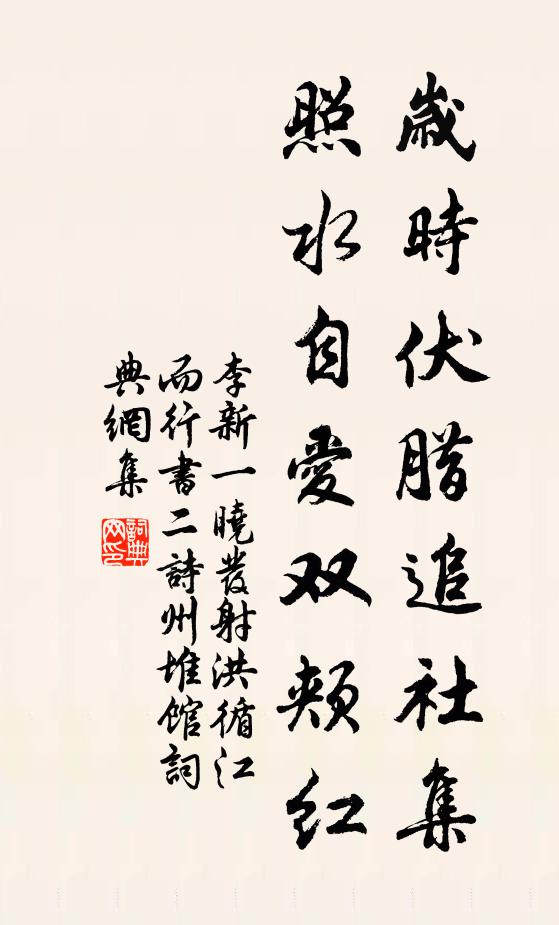 歲時伏腊追社集
照水自愛双頰紅
李新一曉發射洪循江
而行書二詩州堆館詞
典網集
詞典網印